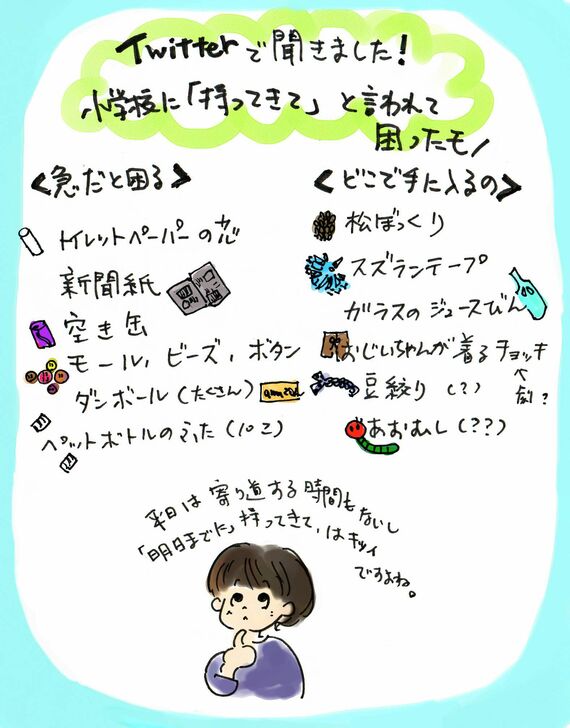 Twitterで聞きました!
小学校に「持ってきて」と言われて
困ったモノ
<急だと困る>
トイレットペーパーの芯
新聞紙
空き缶
モール、ビーズ、ボタン
ダンボール(たくさん)
ペットボトルのふた(10コ)
<どこで手に入るの>
松ぼっくり
スズランテープ
ガラスのジュースびん
おじいちゃんが着るチョッキ
劇?
豆絞り(?)
あおむし(??)
平日は寄り道する時間もないし
「明日までに」持ってきて、はキツイ
ですよね。